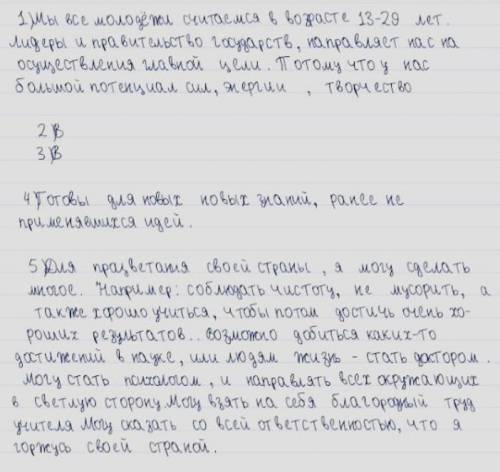 1) Мы все молодёжл считаемся в возрасте 13-29 лет.
Лидеры и правительство государств, направляет нас на
осуществления главной цели. Потому что у нас
большой потенциал сил, энергии , творчество
2) В
3) В
4) Готовы для новых новых знаний, ранее не
применявшихся идей.
5) Для працветания своей страны, я могу сделать
многое. Например: соблюдать чистоту, не мусорить, а
также хорошо учиться, чтобы потом достичь очень хо-
роших результатов.. возможно добиться каких-то
достижений в науке, или людям жизнь - стать доктором.
Могу стать психологом, и направлять всех окружающих
в светлую сторону Могу взять на себя благородный труд
учителя Могу сказать со всей ответственностью, что я
горжусь своей страной.